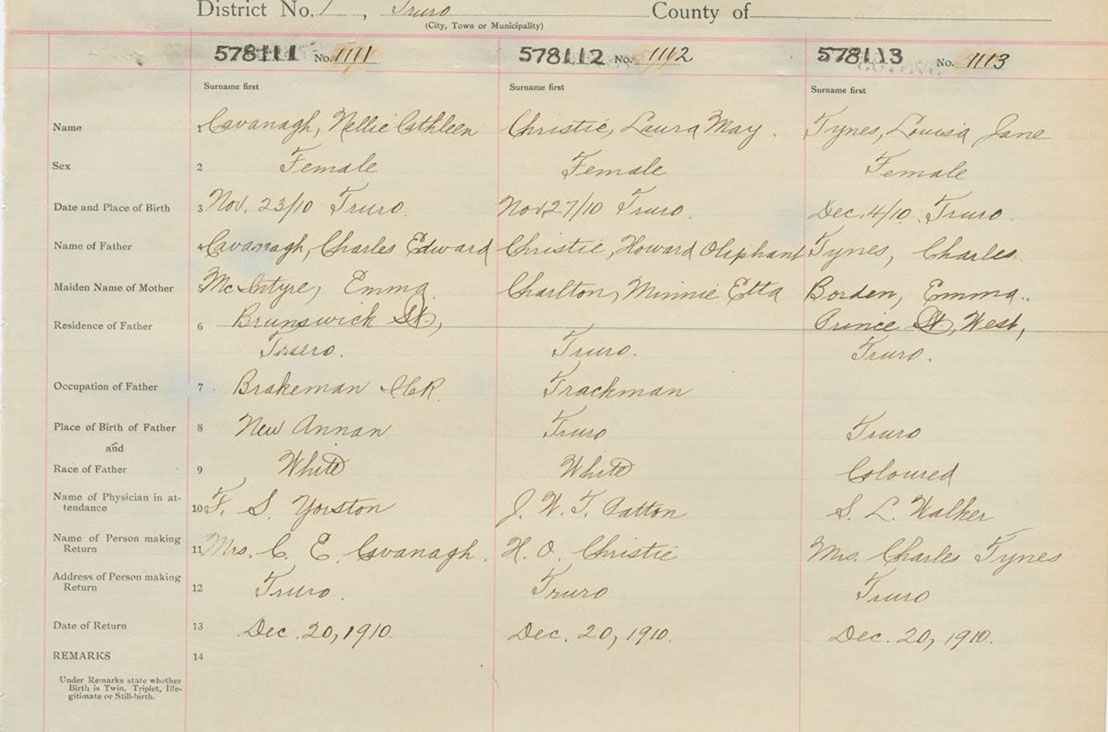 District No. 1, Truro County of
(City, Town or Municipality)
578111 No. 1111 578112 No. 1112 578113 No. 1113
Surname first Surname first Surname first
Name 1 Cavanagh, Nellie Cathleen Christie, Laura May. Tynes, Louisa Jane
Sex 2 Female Female Female
Date and Place of Birth 3 Nov. 23/10 Truro. Nov 27/10 Truro. Dec. 4/10. Truro.
Name of Father 4 Cavanagh, Charles Edward Christie, Howard Oliphant Tynes, Charles.
Maiden Name of Mother 5 McIntyre, Emma. Charlton, Minnie Etta Borden, Emma.
Residence of Father 6 Brunswick St, Prince St, West,
Truro. Truro. Truro.
Occupation of Father 7 Brakeman ICR. Trackman
Place of Birth of Father 8 New Annan Truro Truro
and
Race of Father 9 White White Coloured
Name of Physician in at-
tendance 10 F. S. Yorston J. W. T. Patton S. L. Walker
Name of Person making
Return 11 Mrs. C. E. Cavanagh. H. O. Christie Mrs. Charles Tynes
Address of Person making
Return 12 Truro. Truro Truro
Date of Return 13 Dec. 20, 1910. Dec. 20, 1910. Dec. 20, 1910.
REMARKS 14
Under Remarks state whether
Birth is Twin, Triplet, Ille-
gitimate or Still-birth.